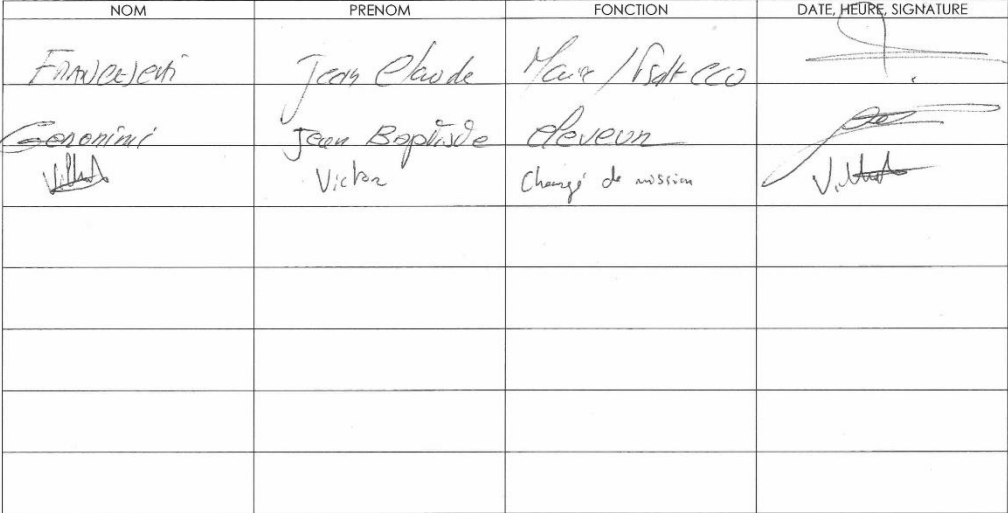 NOM PRENOM FONCTION DATE, HEURE, SIGNATURE
Franceschi Jean Claude Maire /
Geronimi Jean Baptiste eleveur
Victor Chargé de mission